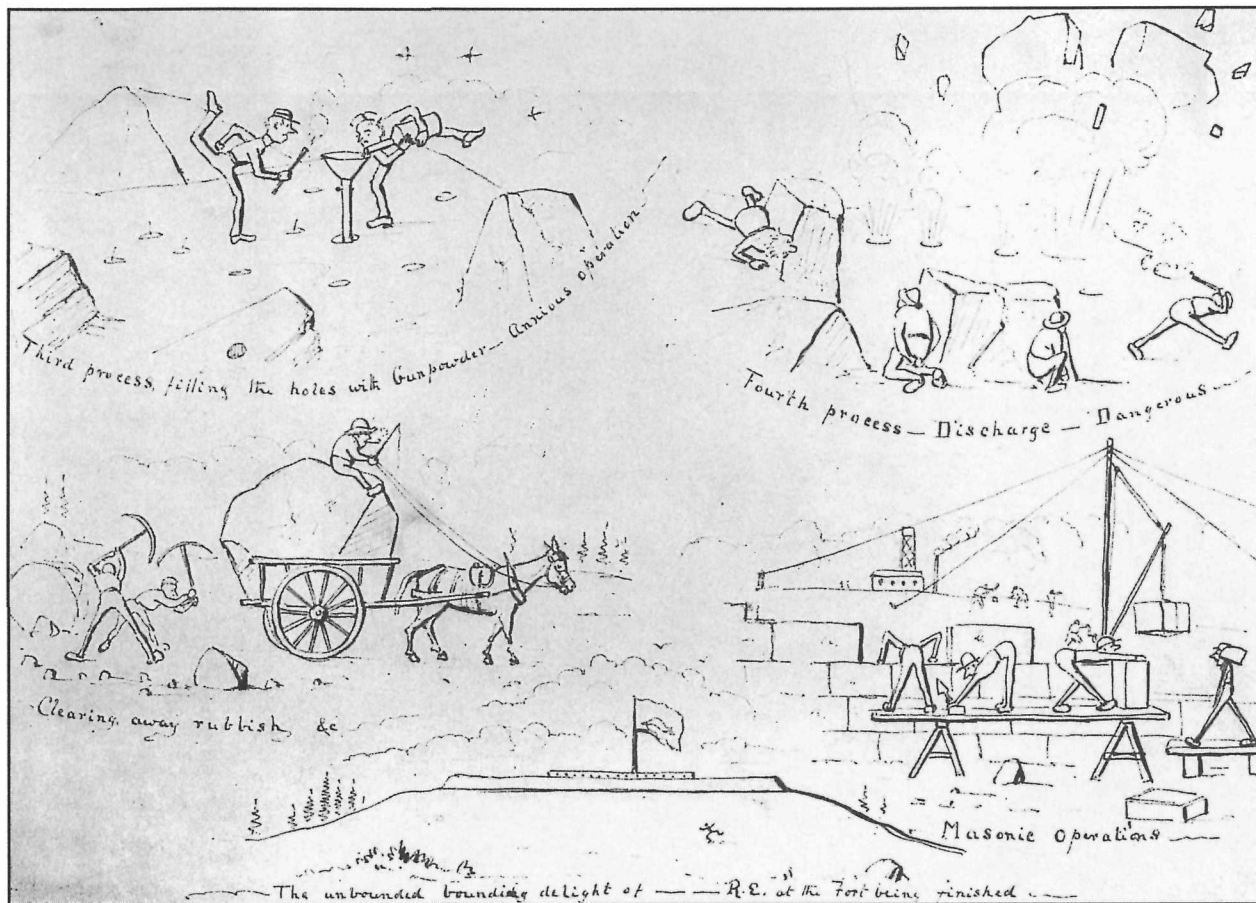 Third process, filling the holes with Gunpowder — Anxious operation
Fourth process — Discharge — Dangerous —
Clearing away rubbish, &c
Masonic operations —
— The unbounded bounding delight of — — R.E. at the Fort being finished —